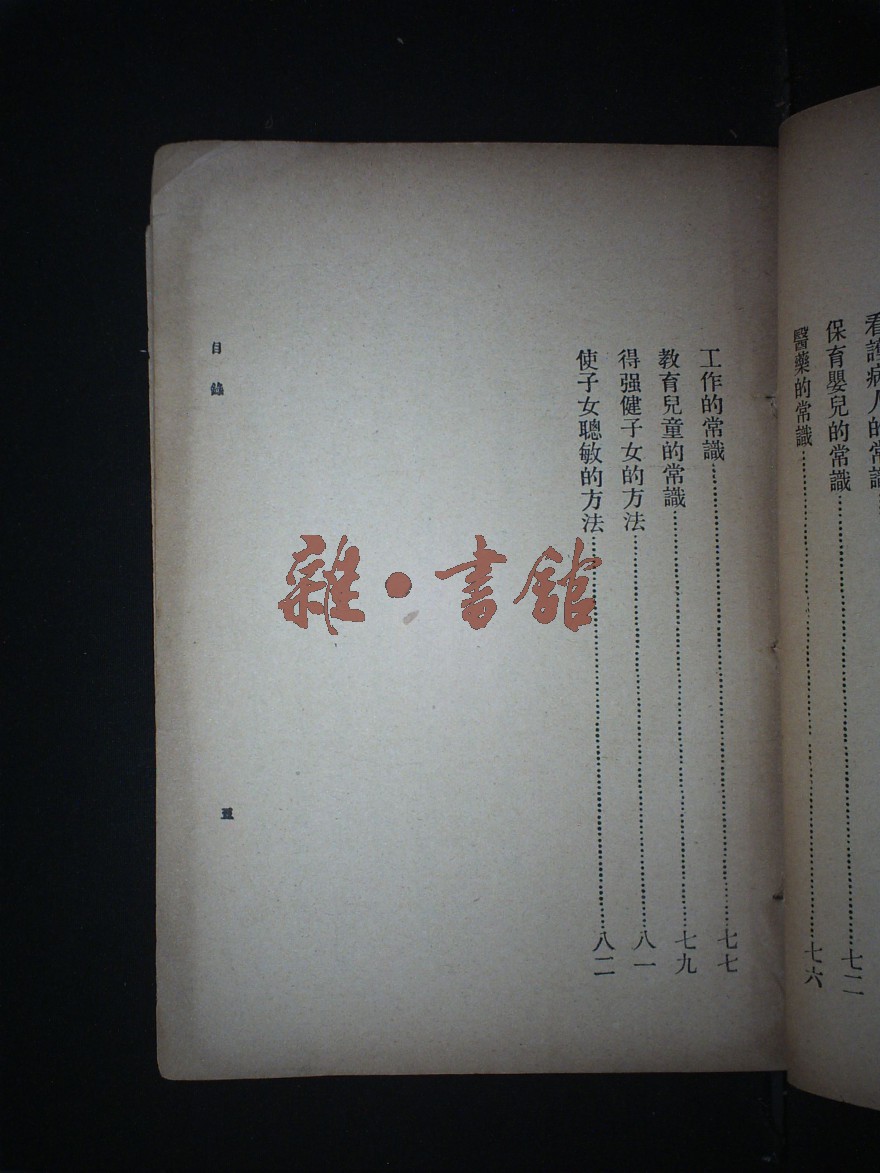 看護病人的常識
保育嬰兒的常識……七二
醫藥的常識……七六
工作的常識……七七
教育兒童的常識……七九
得强健子女的方法……八一
使子女聰敏的方法……八二
目錄
五
雜·書館